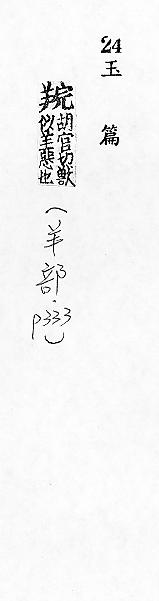 24
玉篇
羦胡官切獸
似羊惡也
(羊部·p333)